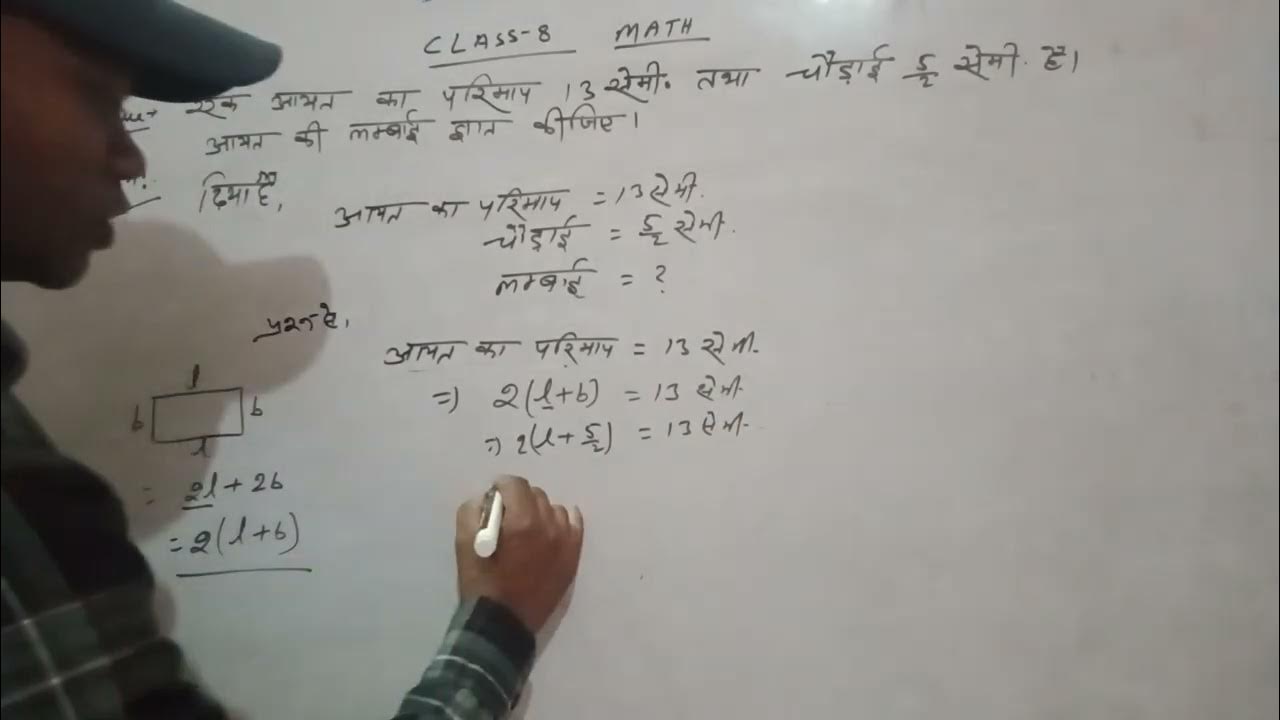 CLASS-8 MATH
एक आयत का परिमाप 13 सेमी. तथा चौड़ाई 5/2 सेमी. है।
आयत की लम्बाई ज्ञात कीजिए।
दिया है,
आयत का परिमाप = 13 सेमी.
चौड़ाई = 5/2 सेमी.
लम्बाई = ?
प्रश्न से,
आयत का परिमाप = 13 सेमी.
=) 2(l+b) = 13 सेमी.
=) 2(l+5/2) = 13 सेमी.
l
b b
l
= 2l + 2b
= 2(l+b)